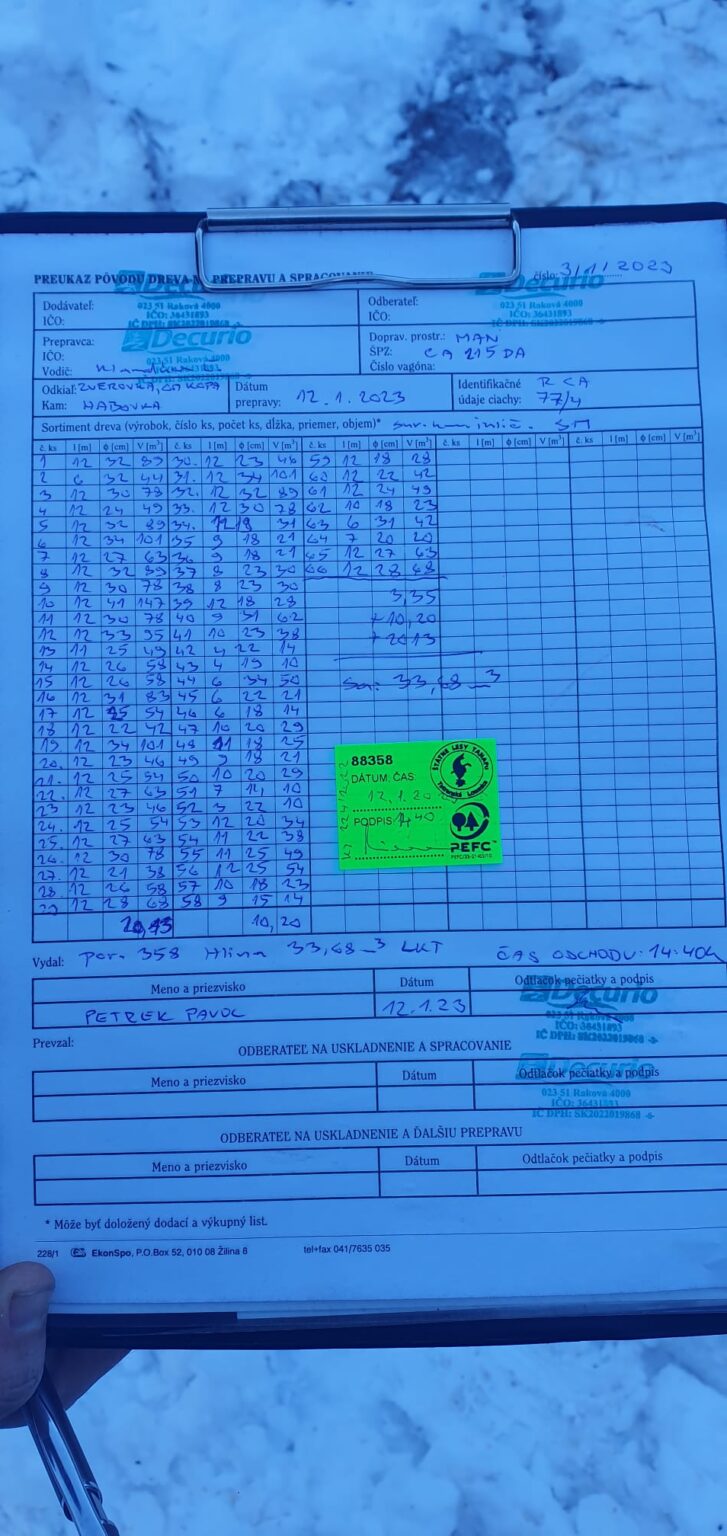 PREUKAZ PÔVODU DREVA NA PREPRAVU A SPRACOVANIE číslo: 3/1/2023
Dodávateľ: Odberateľ:
IČO: IČO:
Decurio
023 51 Raková 4000
IČO: 36431893
IČ DPH: SK2022019868 -6-
Prepravca: Doprav. prostr.: MAN
IČO: ŠPZ: CA 215 DA
Vodič: Číslo vagóna:
Decurio
023 51 Raková 4000
Odkiaľ: ZVEROVKA, Dátum Identifikačné R CA
Kam: HABOVKA prepravy: 12.1.2023 údaje ciachy: 77/4
Sortiment dreva (výrobok, číslo ks, počet ks, dĺžka, priemer, objem)* SM
č. ks l [m] ϕ [cm] V [m³] č. ks l [m] ϕ [cm] V [m³] č. ks l [m] ϕ [cm] V [m³] č. ks l [m] ϕ [cm] V [m³] č. ks l [m] ϕ [cm] V [m³]
1 12 32 89 30. 12 23 46 59 12 18 28
2 6 32 44 31. 12 34 101 60 12 22 42
3 12 30 78 32. 12 32 89 61 12 24 49
4 12 24 49 33. 12 30 78 62 10 18 23
5 12 32 89 34. 12 19 31 63 6 31 42
6 12 34 101 35 9 18 21 64 7 20 20
7 12 27 63 36 9 18 21 65 12 27 63
8 12 32 89 37 8 23 30 66 12 28 68
9 12 30 78 38 8 23 30
10 12 41 147 39 12 18 28 3,35
11 12 30 78 40 9 31 62 + 10,20
12 12 33 95 41 10 23 38 + 2013
13 11 25 49 42 4 22 14
14 12 26 58 43 4 19 10
15 12 26 58 44 6 34 50 33,68
16 12 31 83 45 6 22 21
17 12 25 54 46 6 18 14
18 12 22 42 47 10 20 29
19 12 34 101 48 11 18 25
20. 12 23 46 49 9 18 21
21. 12 25 54 50 10 20 29
22. 12 27 63 51 7 14 10
23 12 23 46 52 3 22 10
24. 12 25 54 53 12 20 34
25. 12 27 63 54 11 22 38
26. 12 30 78 55 11 25 49
27. 12 21 38 56 12 25 54
28. 12 26 58 57 10 18 23
29 12 28 68 58 9 15 14
20,13 10,20
88358
DÁTUM, ČAS
12.1.20
PODPIS 14 40
ŠTÁTNE LESY TANAPU
PEFC™
Vydal: Por. 358 Hlina 33,68 m3 LKT ČAS ODCHODU: 14:40h
Meno a priezvisko Dátum Odtlačok pečiatky a podpis
PETREK PAVOL 12.1.23
Decurio
023 51 Raková 4000
IČO: 36431893
IČ DPH: SK2022019868 -6-
Prevzal:
ODBERATEĽ NA USKLADNENIE A SPRACOVANIE
Meno a priezvisko Dátum Odtlačok pečiatky a podpis
Decurio
023 51 Raková 4000
IČO: 36431893
IČ DPH: SK2022019868 -6-
ODBERATEĽ NA USKLADNENIE A ĎALŠIU PREPRAVU
Meno a priezvisko Dátum Odtlačok pečiatky a podpis
* Môže byť doložený dodací a výkupný list.
228/1 EkonSpo, P.O.Box 52, 010 08 Žilina 8 tel+fax 041/7635 035